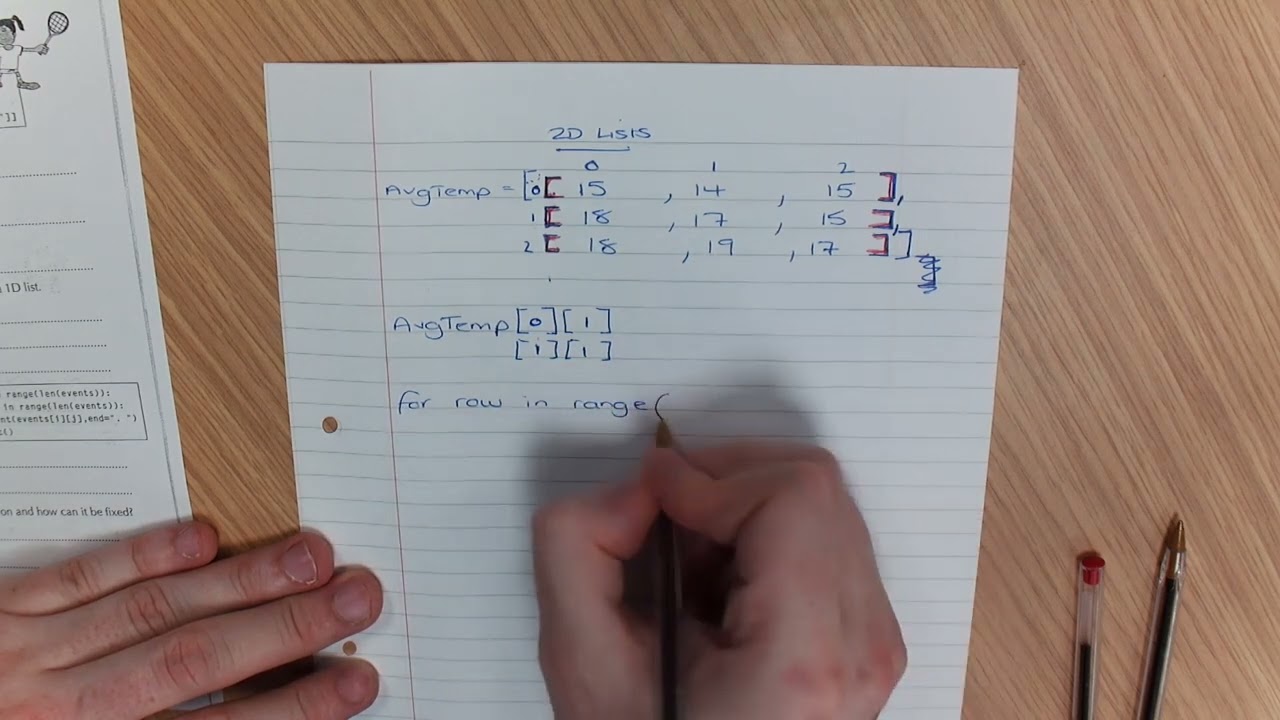 "]]
a 1D list.
range(len(events)):
in range(len(events)):
nt(events[i][j],end=", ")
t()
on and how can it be fixed?
2D Lists
0 1 2
AvgTemp = [0[ 15 , 14 , 15 ],
1[ 18 , 17 , 15 ],
2 [ 18 , 19 , 17 ]]
AvgTemp[0][1]
[i][1]
for row in range(